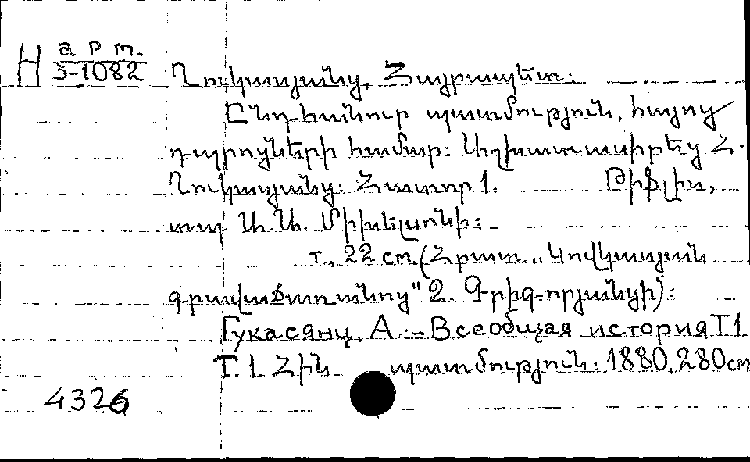 арт.
H 5-1082
Ղուկասյանց, Հայրապետ:
Ընդհանուր պատմություն, հայոց
դպրոցների համար: Աշխատասիրեց Հ.
Ղուկասյանց: Հատոր 1. Թիֆլիս,
տպ Մ.
т., 22 cm. (Հրատ. „Կովկասյան
գրավաճառանոց" Զ. Գրիգորյանցի):
Гукасянц, А. - Всеобщая история Т1
T. 1 Հին պատմություն: 1880, 280
4326